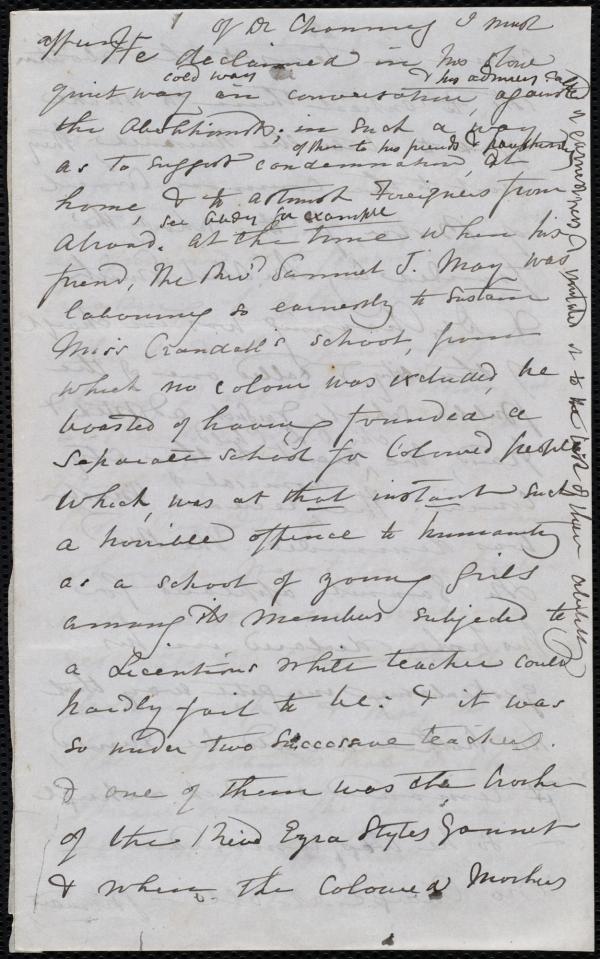 of Dr Channing I must
affirm He declaimed in his slow
quiet way in conversation, against
cold way & his admirers
the Abolitionists; in such a way
as to suggest condemnation, at
of them to his friends &
home, & to astonish Foreigners from
abroad. at the time when his
see for example
friend, The Revd. Samuel J. May was
labouring so earnestly to sustain
Miss Crandall's school, from
which no colour was excluded, he
boasted of having founded a
separate school for Colored people
which, was at that instant such
a horrible offence to humanity
as a school of young girls
among its members subjected to
a Licentious white teacher could
hardly fail to be: & it was
so under two successive teachers.
& one of them was the brother
of the Revd Ezra Styles Gannet
& when the Coloured Mothers
earnestness to the best of their abilities